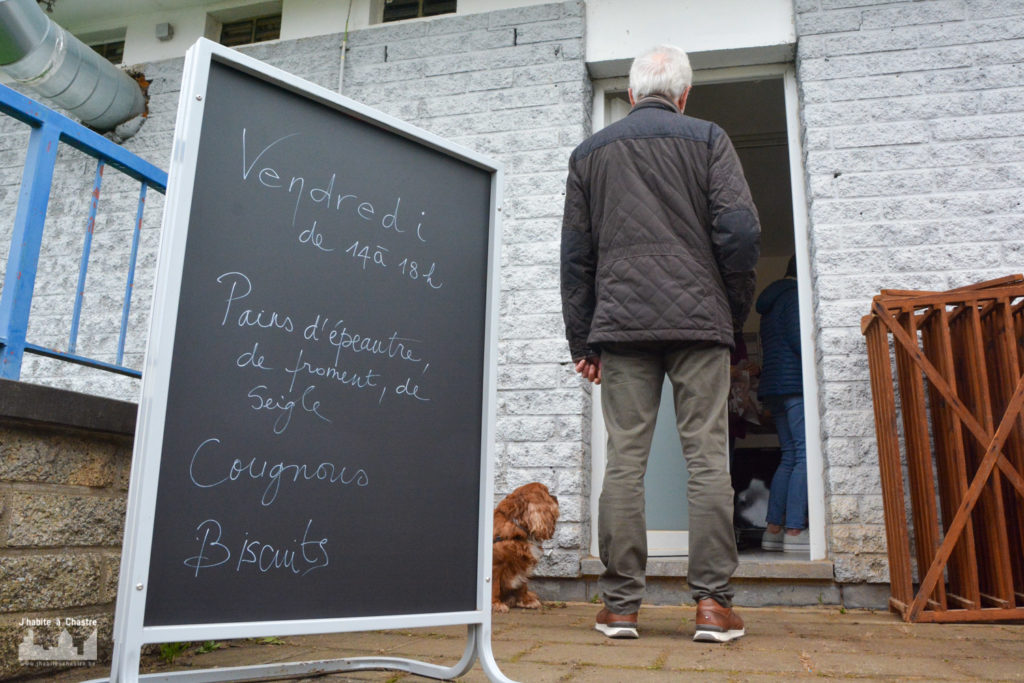 Vendredi
de 14à 18h
Pains d'épeautre,
de froment, de
Seigle
Cougnous
Biscuits
J'habite à Chastre